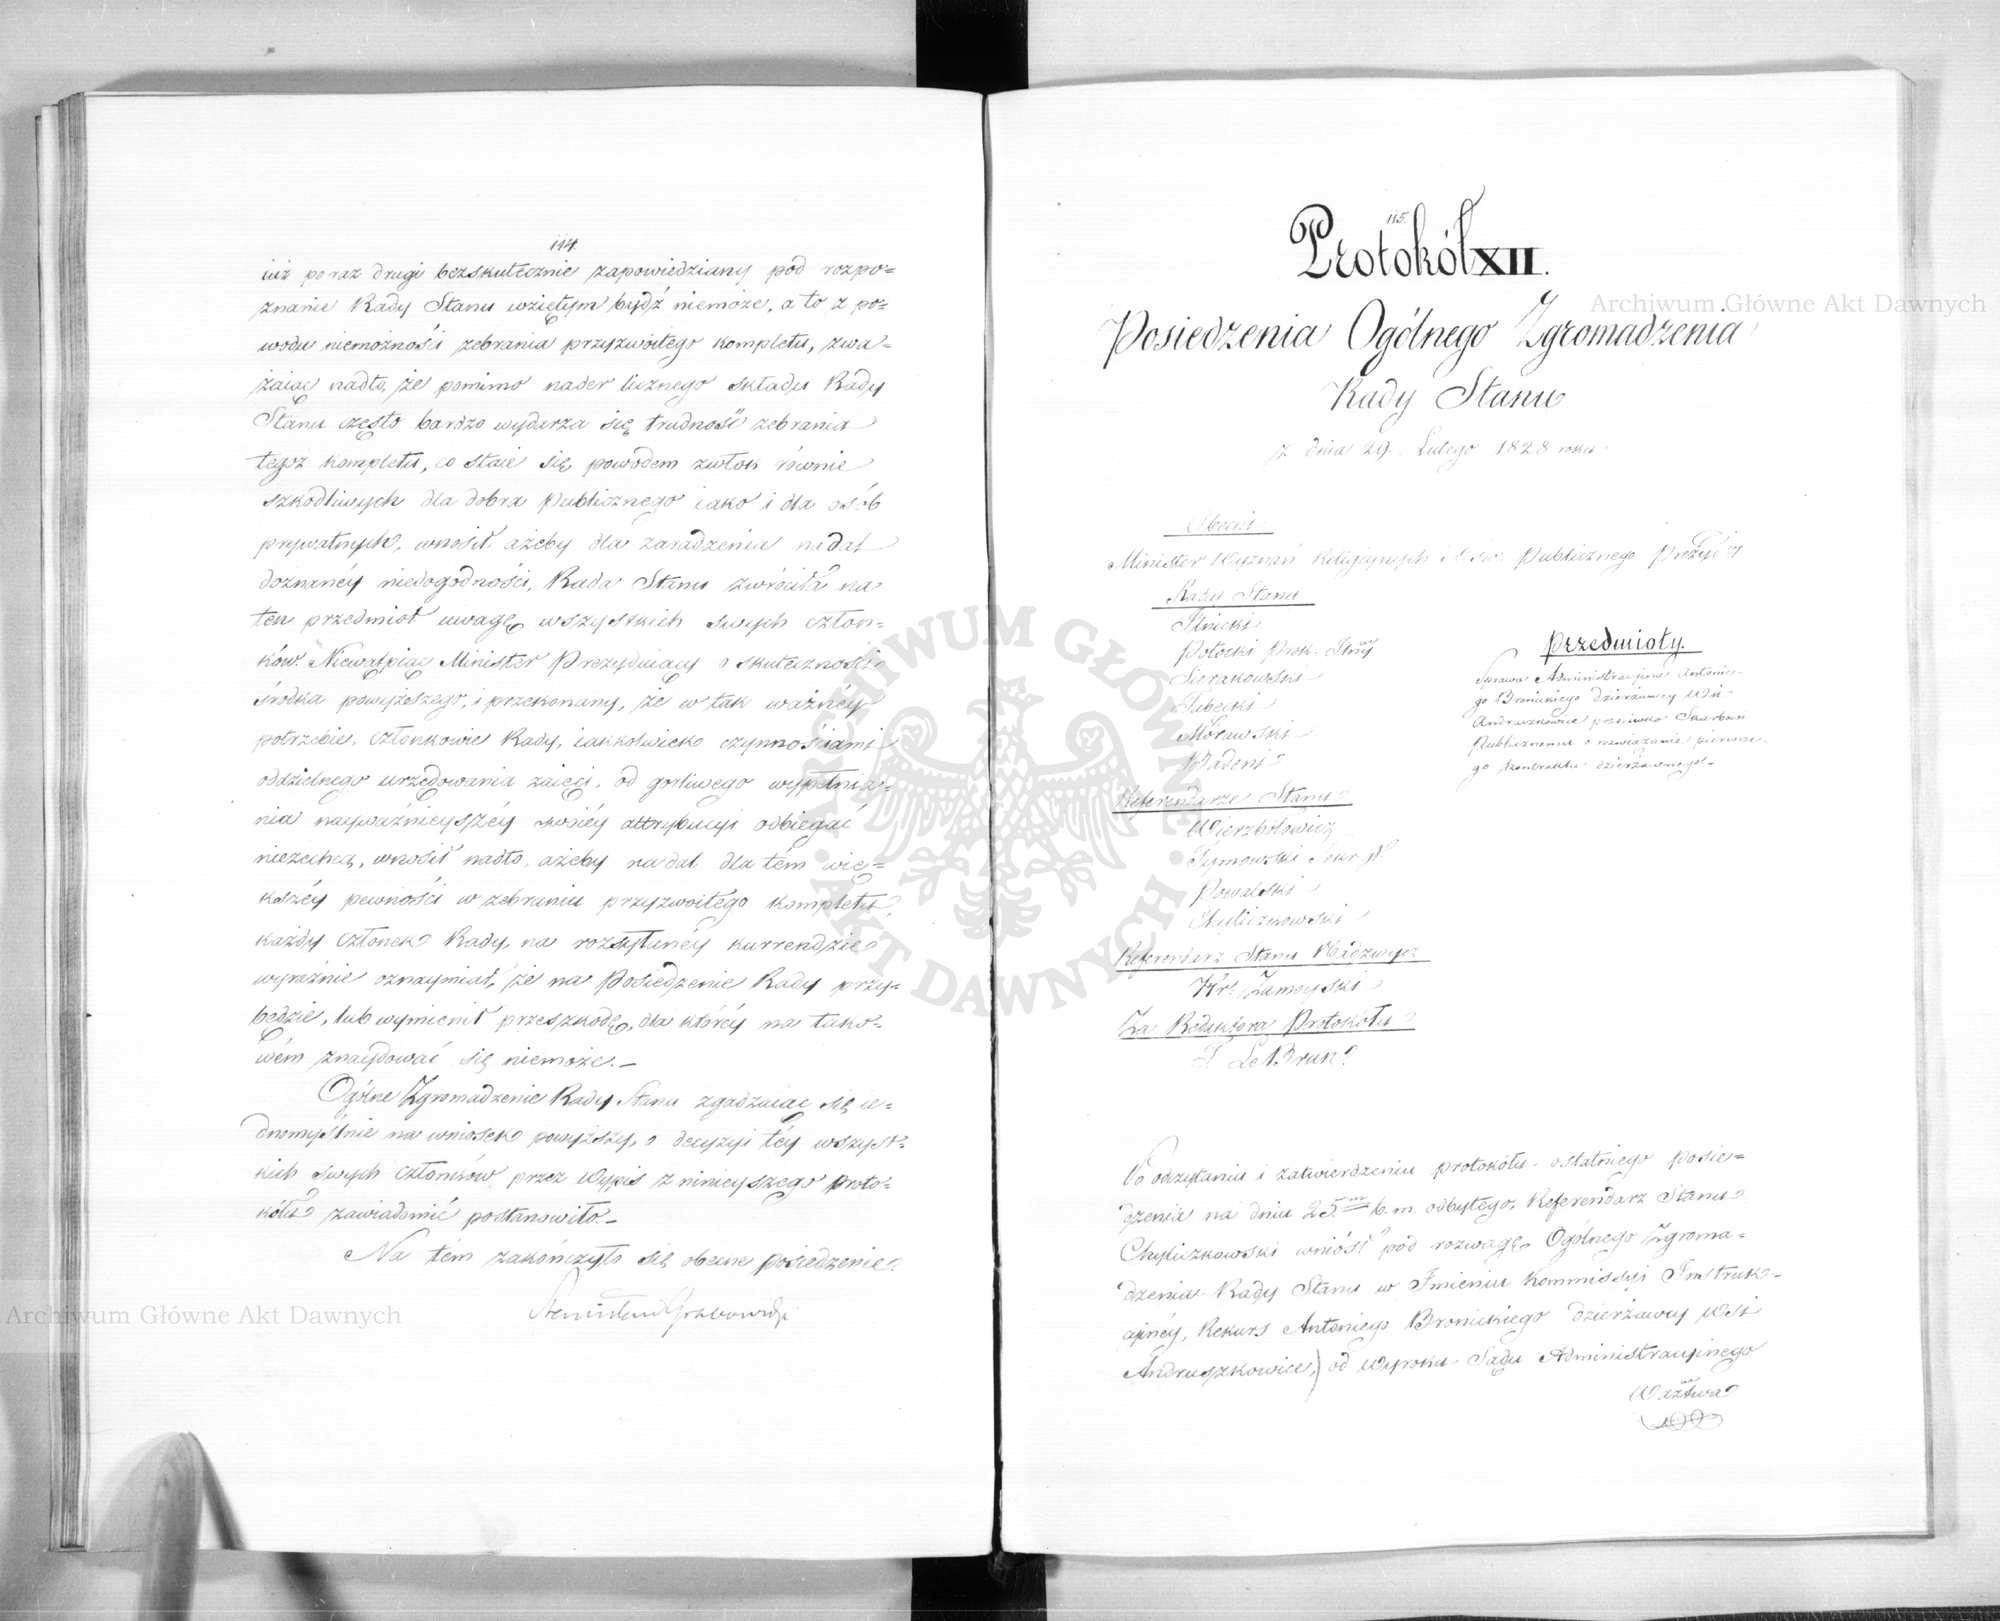 114.
iuż poraz drugi bezskutecznie zapowiedziany pod rozpo=
znanie Rady Stanu wziętym bydź niemoże, a to z po=
wodu niemożności zebrania przyzwoitego kompletu, zwa=
żaiąc nadto, że pomimo nader licznego składu Rady
Stanu często bardzo wydarza się trudność zebrania
tegoż kompletu, co staie się powodem zwłok równie
szkodliwych dla dobra Publicznego iako i dla osób
prywatnych, wnosił ażeby dla zaradzenia nadal
doznanéy niedogodności, Rada Stanu zwróciła na
ten przedmiot uwagę wszystkich swych człon=
ków. Niewątpiąc Minister Prezyduiący o skuteczności
środka powyższego, i przekonany, że w tak ważnéy
potrzebie, członkowie Rady, iakkolwiek czynnościami
oddzielnego urzędowania zaięci, od gorliwego wypełnia=
nia nayważnieyszéy swoiéy attrybucyi odbiegać
niezechcą, wnosił nadto, ażeby nadal dla tém wię=
kszéy pewności w zebraniu przyzwoitego kompletu,
każdy członek Rady, na rozsyłanéy kurrendzie
wyraźnie oznaymiał, że na Posiedzenie Rady przy=
będzie, lub wymienił przeszkodę, dla któréy na tako=
wém znaydować się niemoże.
Ogólne Zgromadzenie Rady Stanu zgadzaiąc się ie=
dnomyślnie na wniosek powyższy, o decyzyi téy wszyst=
kich swych członków przez Wypis z ninieyszego proto=
kółu zawiadomić postanowiło.
Na tém zakończyło się obecne posiedzenie.
Stanisław Grabowski
115.
Protokół XII.
Posiedzenia Ogólnego Zgromadzenia
Rady Stanu
z dnia 29. Lutego 1828 roku
Obecni
Minister Wyznań Religiynych i Ośw. Publicznego Prezyd:
Radcy Stanu
Ilnicki
Potocki Prok:
Sierakowski
Tabecki
Morawski
Badeni
Referendarze Stanu
Wierzbołowicz
Tymowski Sekr.
Kowalski
Chyliczkowski
Referendarz Stanu Nadzwycz
Hr: Zamoyski
Za Redaktora Protokółu
J LeBrun
Przedmioty.
Sprawa Administracyina Antonie=
go Bronickiego dzierżawcy Wsi
Andruszkowice przeciwko Skarbowi
Publicznemu o rozwiązanie pierwsze=
go kontraktu dzierżawnego.
Po odczytaniu i zatwierdzeniu protokółu ostatniego posie=
dzenia na dniu 25.m b. m. odbytego, Referendarz Stanu
Chyliczkowski wniósł pod rozwagę Ogólnego Zgroma=
dzenia Rady Stanu w Imieniu Kommissyi Instruk=
cyinéy, Rekurs Antoniego Bronickiego dzierżawcy Wsi
Andruszkowice, od Wyroku Sądu Administracyinego
Wdztwa
Archiwum Główne Akt Dawnych
Archiwum Główne Akt Dawnych
ARCHIWUM GŁÓWNE AKT DAWNYCH